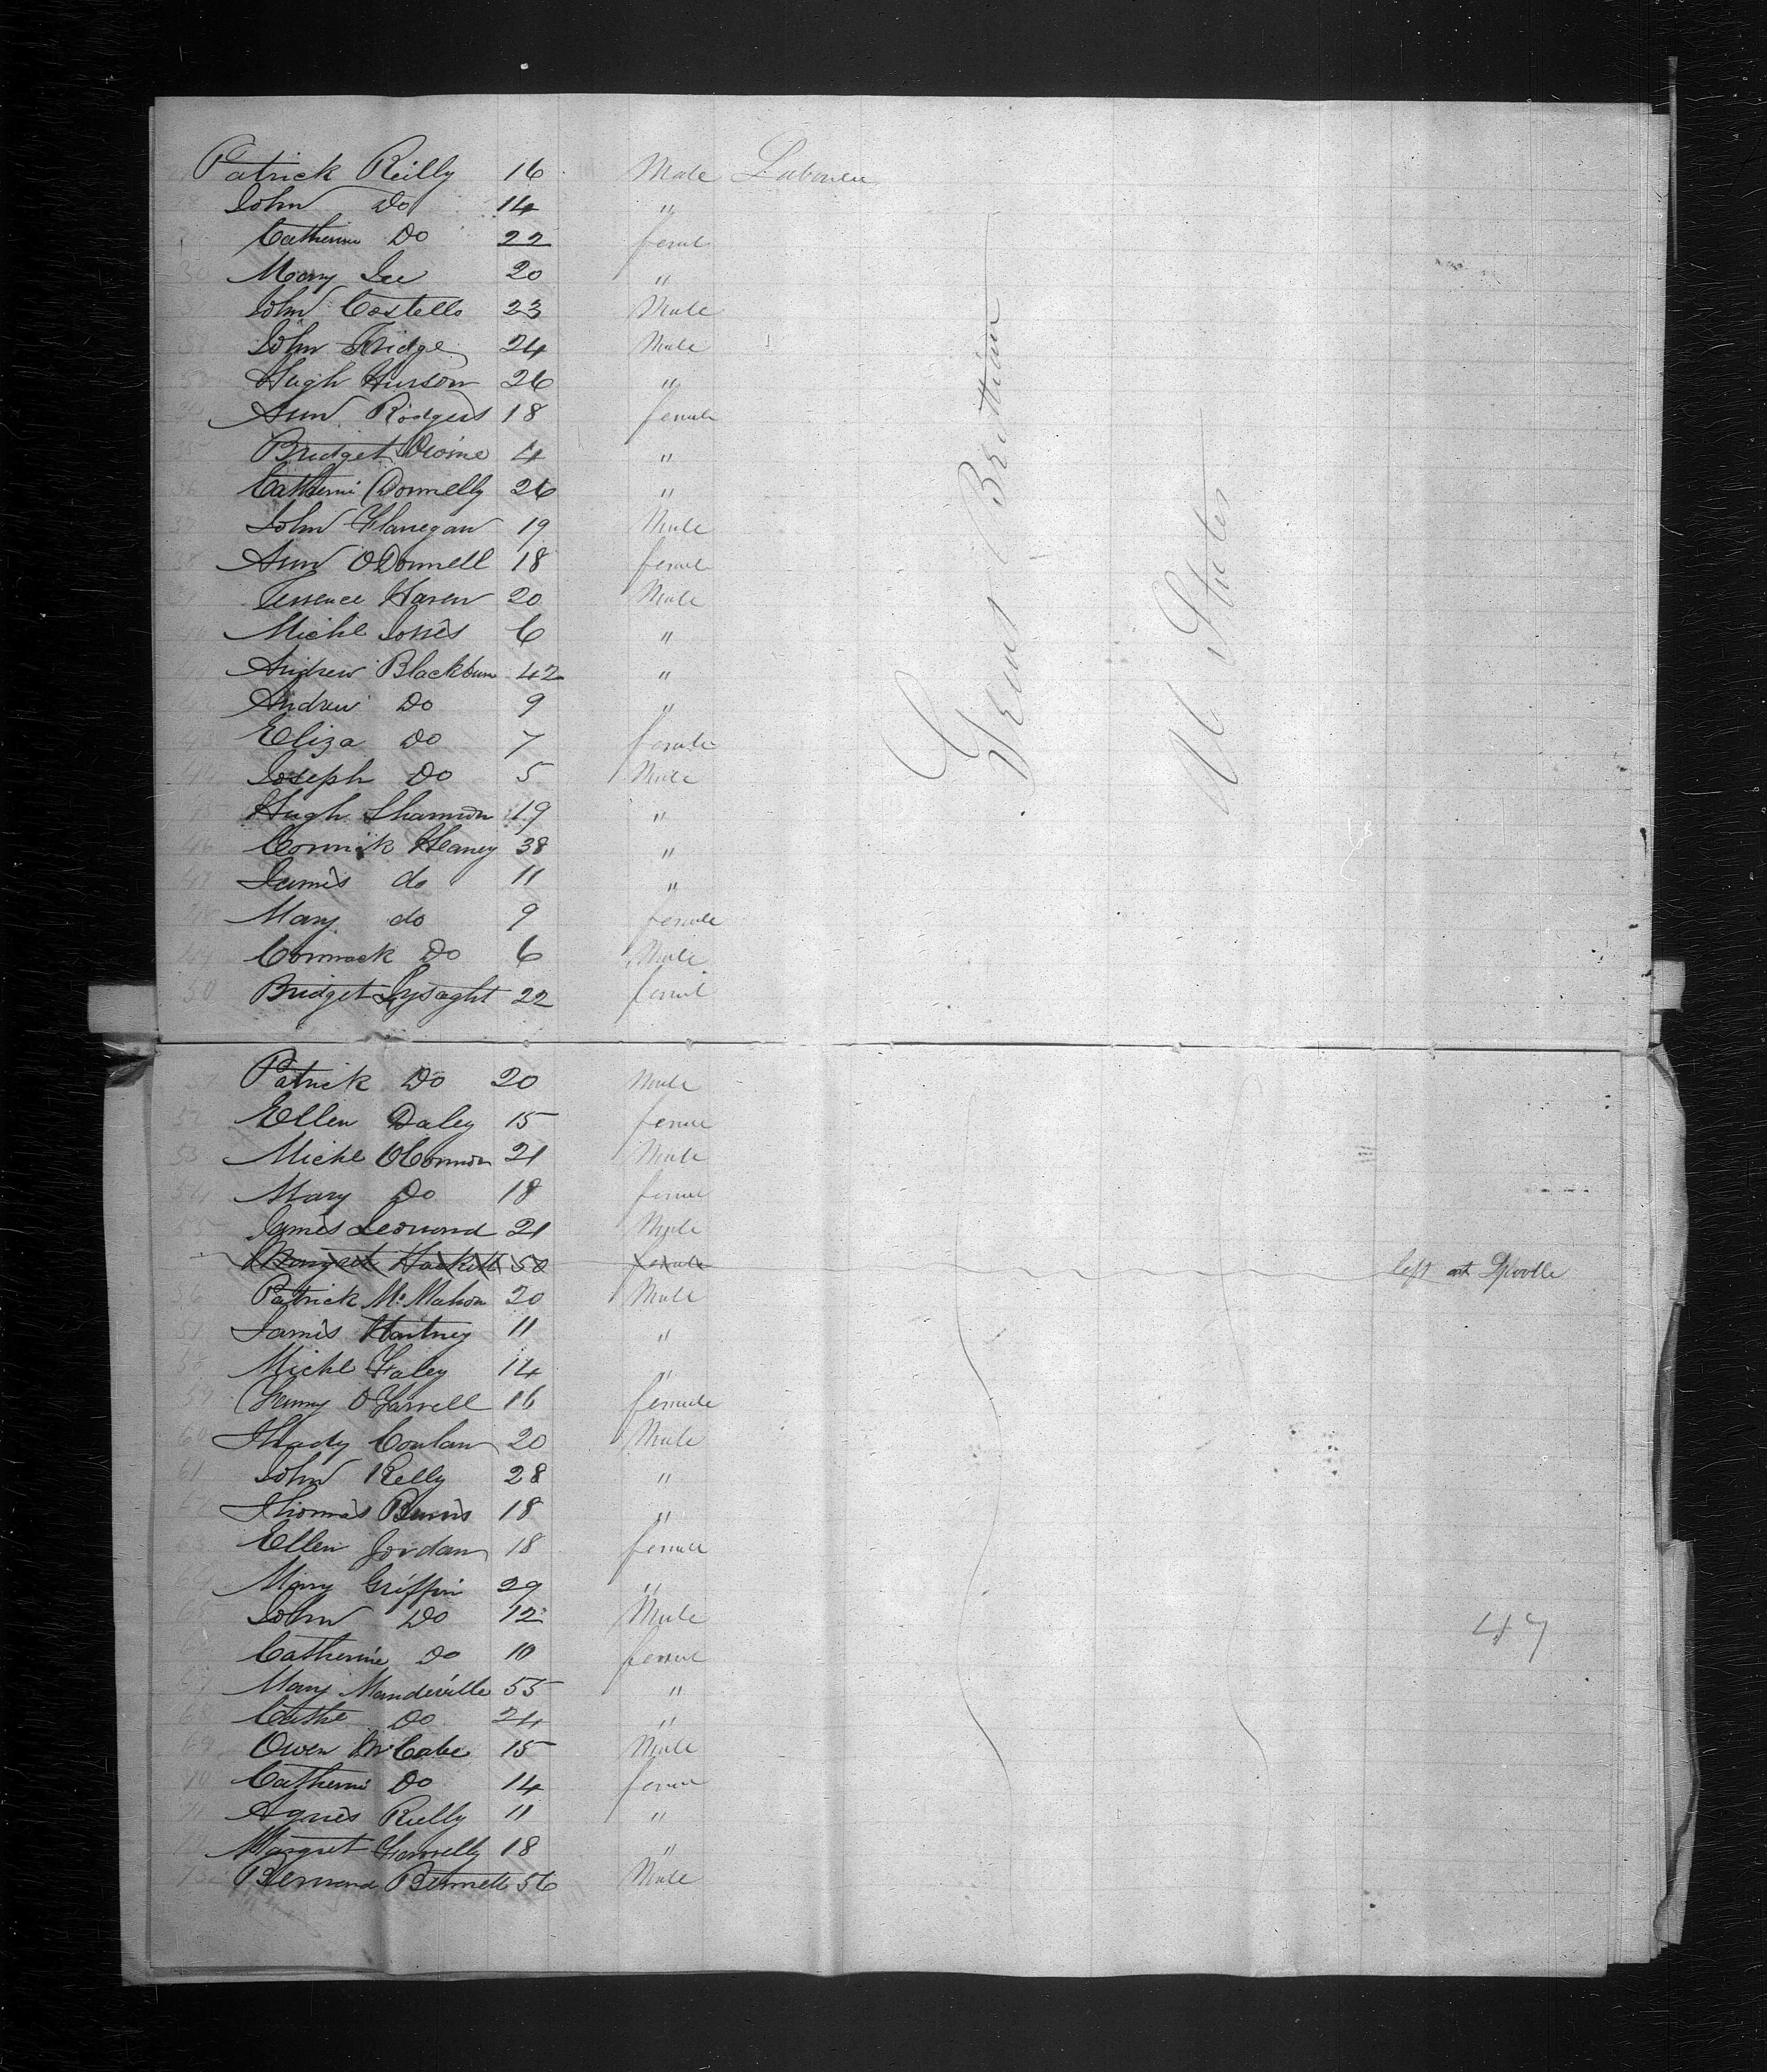 Patrick Reilly 16 Male Labourer
John Do 14 "
Catherine Do 22 female
30 Mary Lee 20 "
31 John Costello 23 Male
John Fridge 24 Male
Hugh Hurson 26 "
Ann Rodgers 18 female
35 Bridget 4 "
36 Catherine Donnelly 26 "
37 John Flanegan 19 Male
38 Ann ODonnell 18 female
Terrence Haren 20 Male
Michl Jones 6 "
Andrew Blackburn 42 "
Andrew Do 9 "
43 Eliza Do 7 female
44 Joseph Do 5 Male
45 Hugh Shannon 19 "
46 Cormick Heaney 38 "
47 James do 11 "
48 Mary do 9 female
49 Cormack Do 6 Male
50 Bridget Lysaght 22 female
Great Brittian
U States
51 Patrick Do 20 Male
52 Ellen Daley 15 female
53 Michl OConnor 21 Male
54 Mary Do 18 female
55 James Leonard 21 Male
Margret Hackett 50 female left at Lpoolle
56 Patrick McMahon 20 Male
57 James Hartney 11 "
58 Michl Faley 14 "
59 Fanny OFarrell 16 female
60 Thady Conlan 20 Male
61 John Kelly 28 "
62 Thomas Burns 18 "
63 Ellen Jordan 18 female
64 Mary Griffin 29 "
65 John Do 12 Male
66 Catherine Do 10 female
67 Mary Mandeville 55 "
68 Cathe Do 24 "
69 Owen McCabe 15 Male
70 Catherine Do 14 female
71 Agnes Rielly 11 "
72 Margret Farrelly 18 "
73 Bernard Bennett 56 Male
47